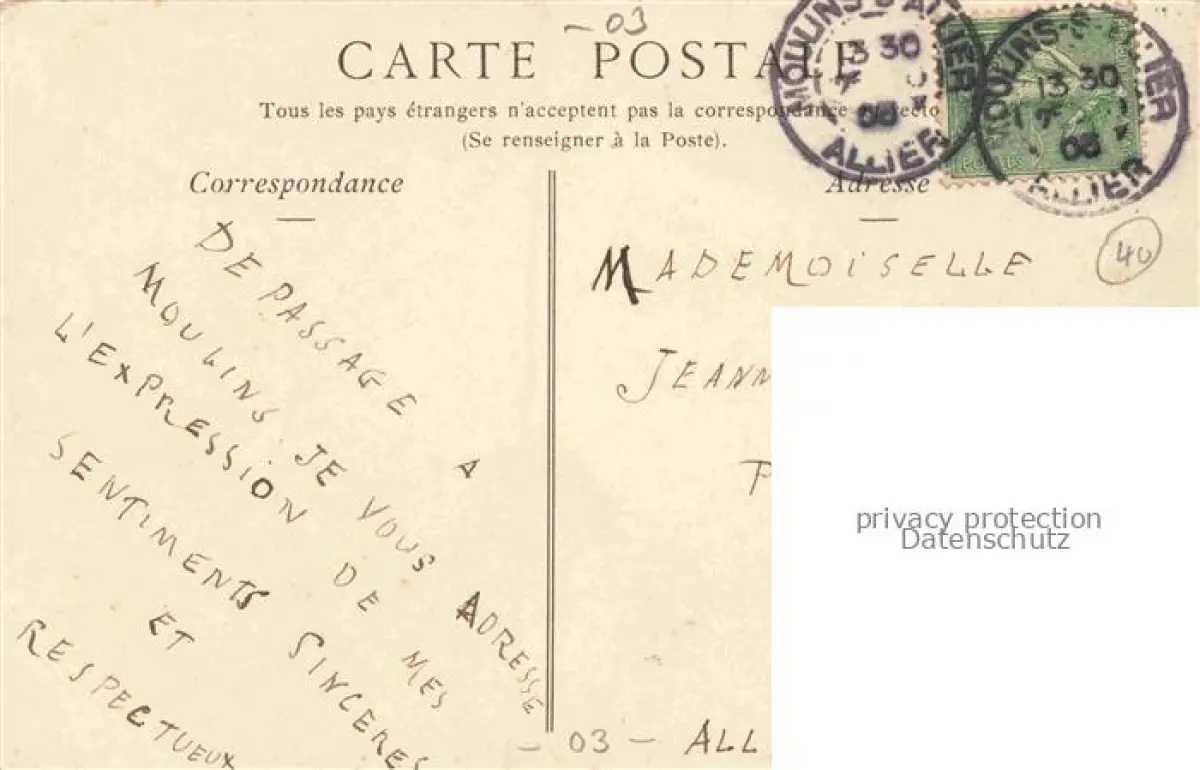 - 03
CARTE POSTALE
Tous les pays étrangers n'acceptent pas la correspondance au recto
(Se renseigner à la Poste).
MOULINS-S-ALLIER
13 30
ALLIER
MOULINS-S-ALLIER
13 30
ALLIER
Correspondance
DE PASSAGE A
MOULINS JE VOUS ADRESSE
L'EXPRESSION DE MES
SENTIMENTS SINCERES
ET
RESPECTUEUX
Adresse
40
MADEMOISELLE
JEANN
P
privacy protection
Datenschutz
- 03 -
ALL